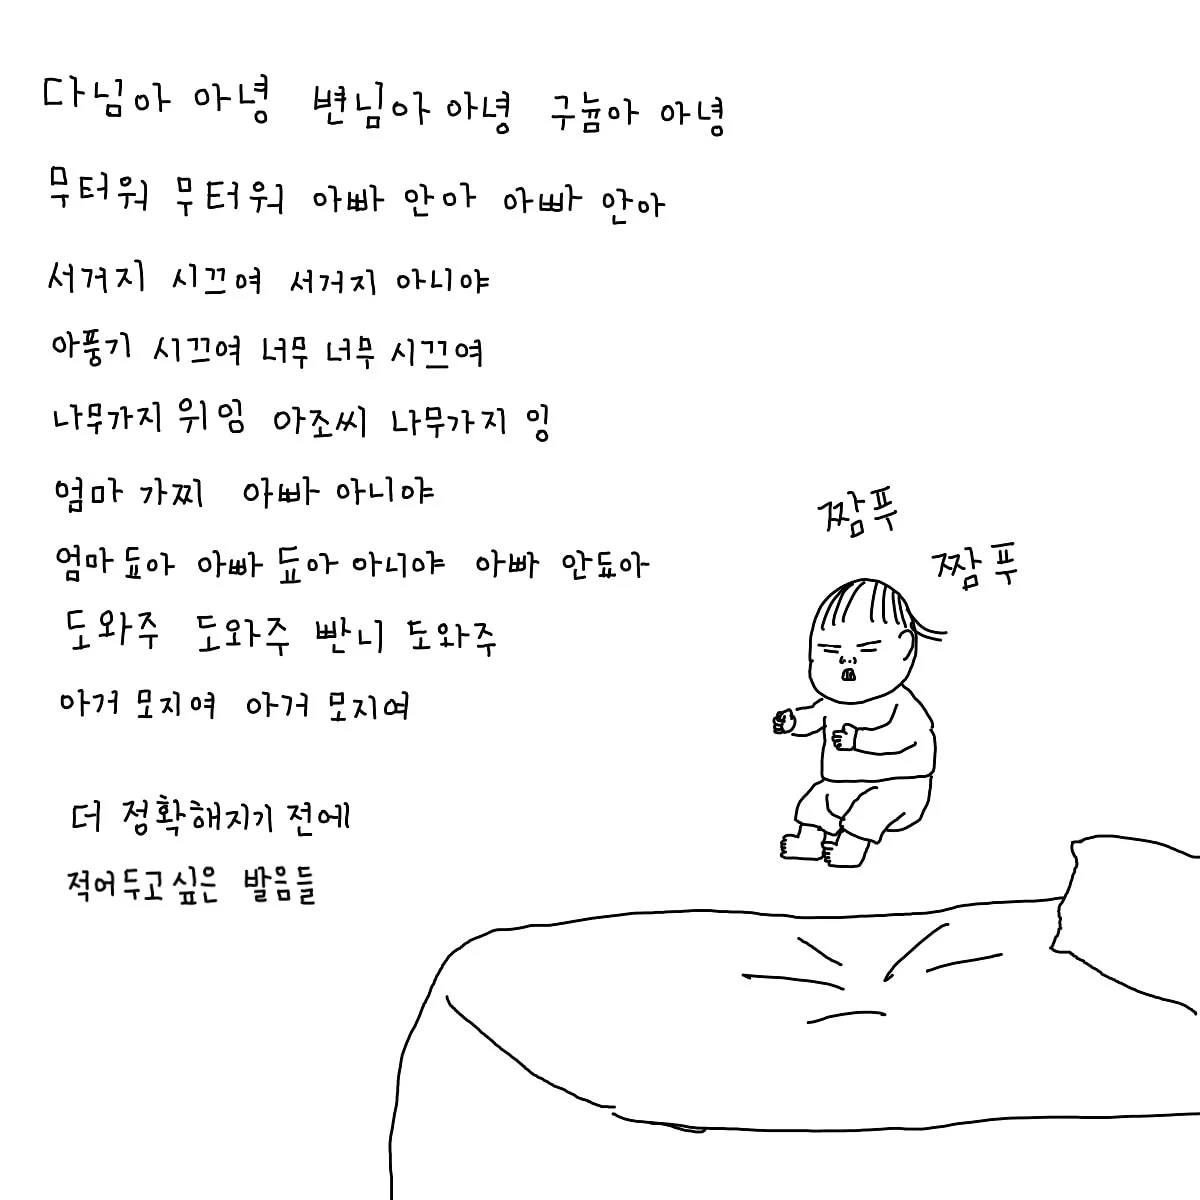 다님아 아녕 변님아 아녕 구늄아 아녕
무터워 무터워 아빠 안아 아빠 안아
서거지 시끄여 서거지 아니야
아풍기 시끄여 너무 너무 시끄여
나무가지 위임 아조씨 나무가지 잉
엄마 가찌 아빠 아니야
엄마 됴아 아빠 됴아 아니야 아빠 안됴아
도와주 도와주 빤니 도와주
아거 모지여 아거 모지여
짬푸
짬푸
더 정확해지기 전에
적어두고싶은 발음들